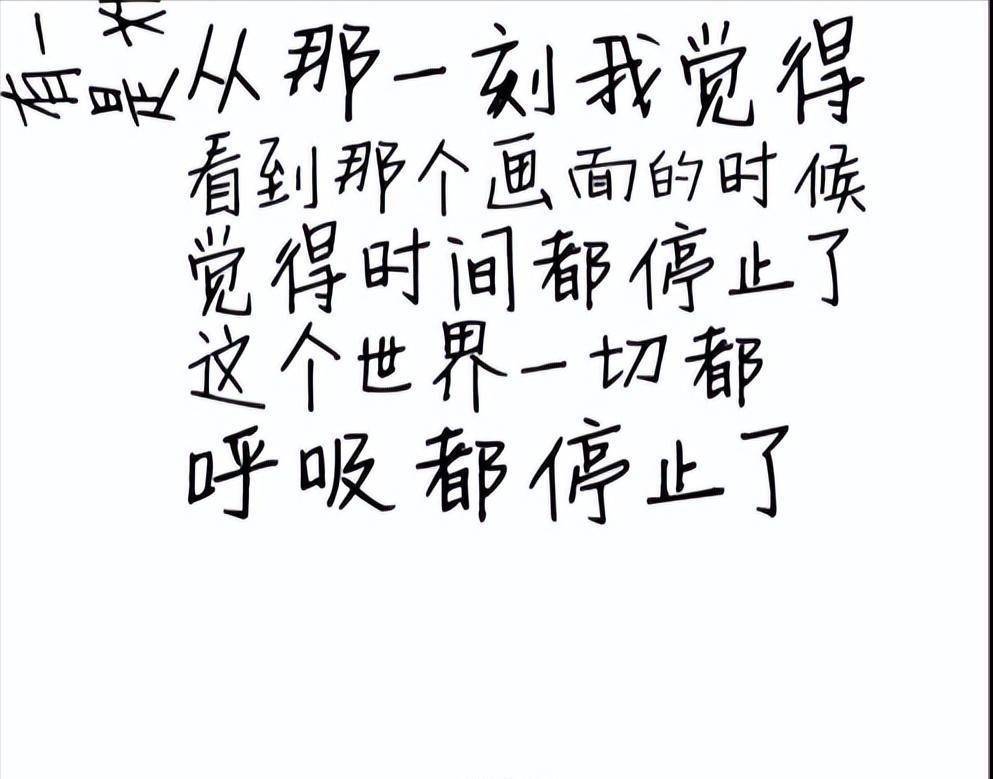 从那一刻我觉得
看到那个画面的时候
觉得时间都停止了
这个世界一切都
呼吸都停止了